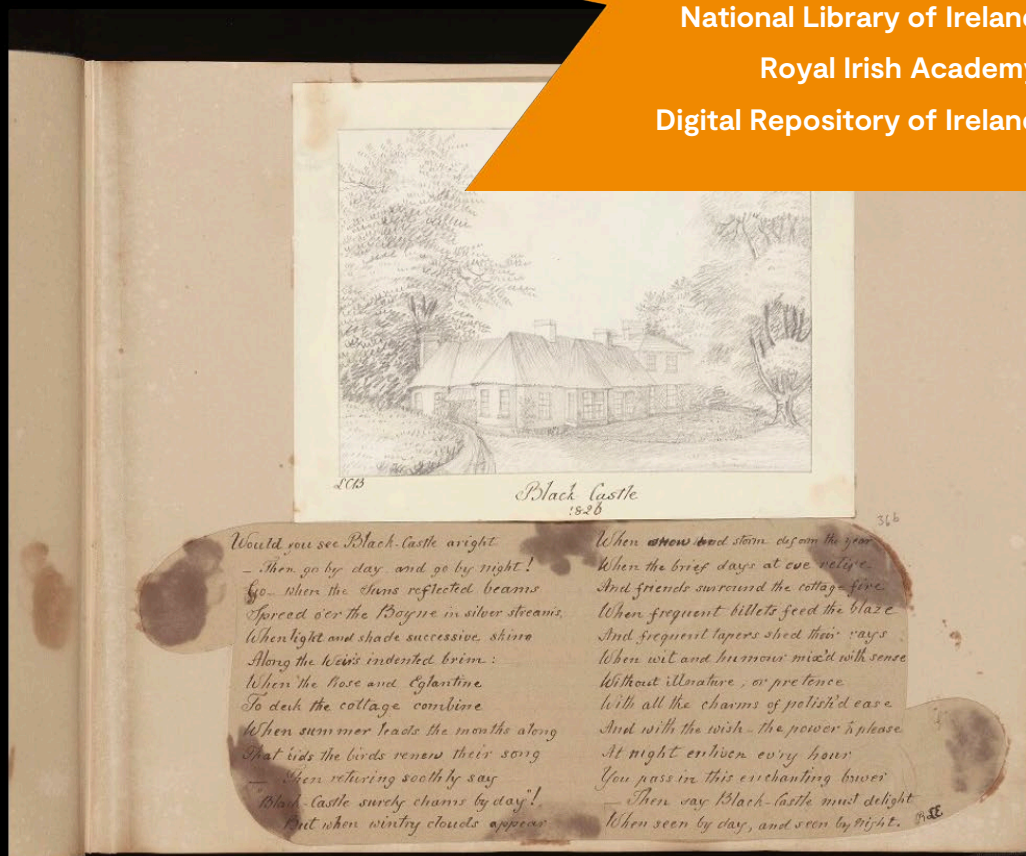 National Library of Ireland
Royal Irish Academy
Digital Repository of Ireland
LCB
Black Castle
1826
366
Would you see Black-Castle aright
– Then go by day and go by night!
Go – when the Suns reflected beams
Spread o'er the Boyne in silver streams,
When light and shade successive shine
Along the Weir's indented brim:
When the Rose and Eglantine
To deck the cottage combine
When summer leads the months along
That bids the birds renew their song
– Then returing soothly say
"Black-Castle surely chams by day"!
But when wintry clouds appear
When storm deform the year
When the brief days at eve retire
And friends surround the cottage fire
When frequent billets feed the blaze
And frequent tapers shed their rays
When wit and humour mix'd with sense
Without illnature, or pretence
With all the charms of polish'd ease
And with the wish – the power to please
At night enliven ev'ry hour
You pass in this enchanting bower
– Then say Black-Castle must delight
When seen by day, and seen by Night.